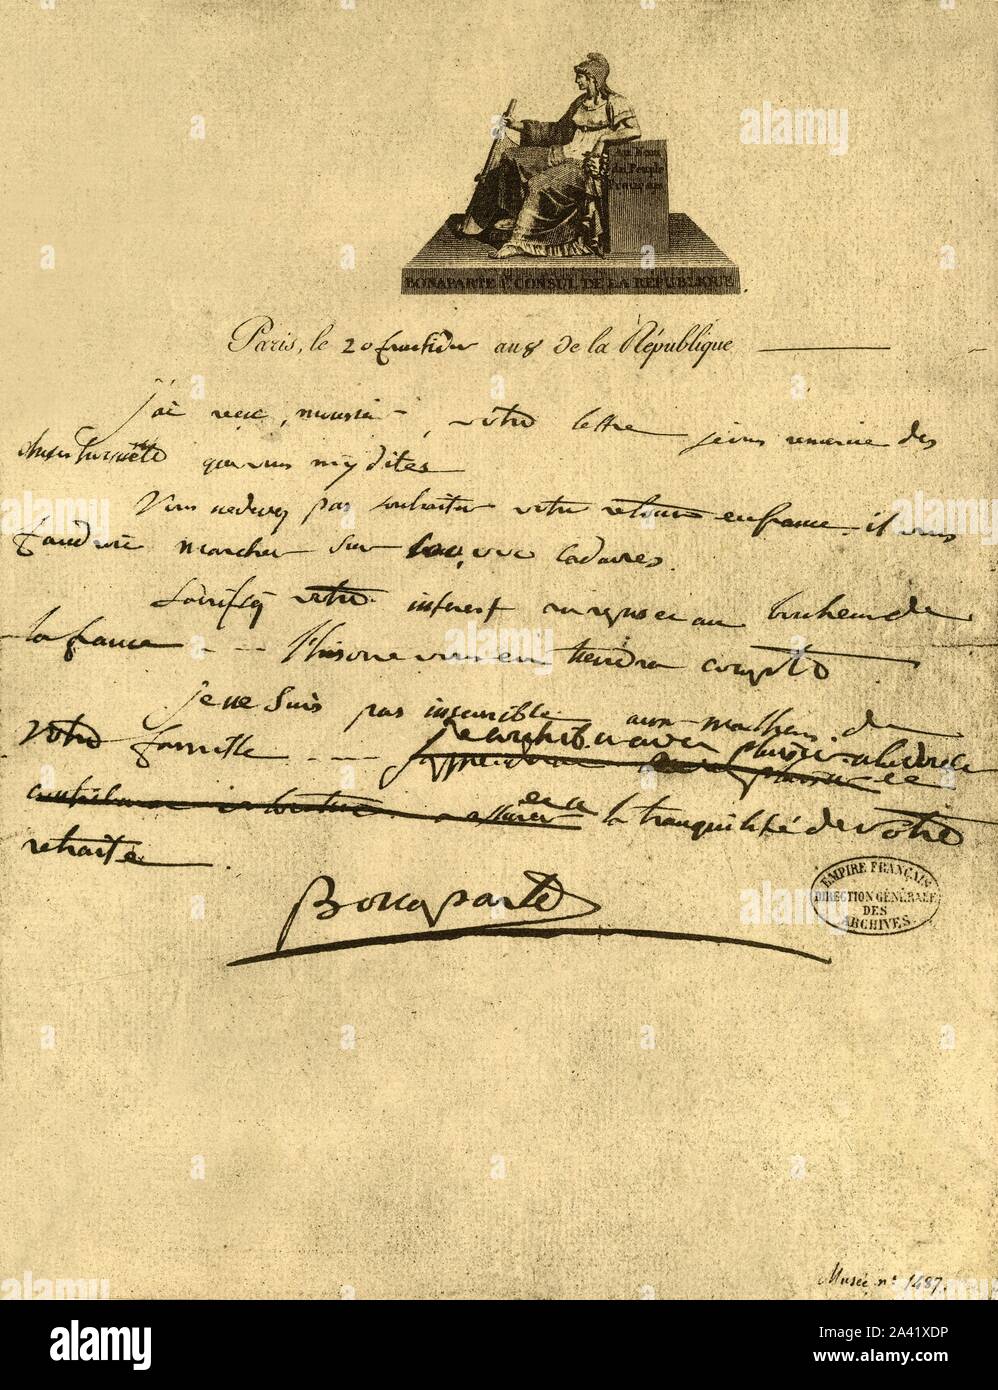 Au Nom
du Peuple
Français
BONAPARTE 1er CONSUL DE LA REPUBLIQUE
Paris, le 20 fructidor an 8 de la République
j'ai reçu, monsieur, votre lettre je vous remercie des
choses honnêtes que vous m'y dites
Vous ne devez pas souhaiter votre retour en france. il vous
faudroit marcher sur 100,000 cadavres.
Sacrifiez votre interest au repos et au bonheur de
la france - - - l'histoire vous en tiendra compte
je ne suis pas insensible aux malheurs de
votre famille - - - je contribuerai avec plaisir à la douceur
et à la tranquilité de votre
retraite
Bonaparte
EMPIRE FRANÇAIS
DIRECTION GÉNÉRALE
DES
ARCHIVES.
Musée, n° 1487.
alamy
Image ID: 2A41XDP
www.alamy.com